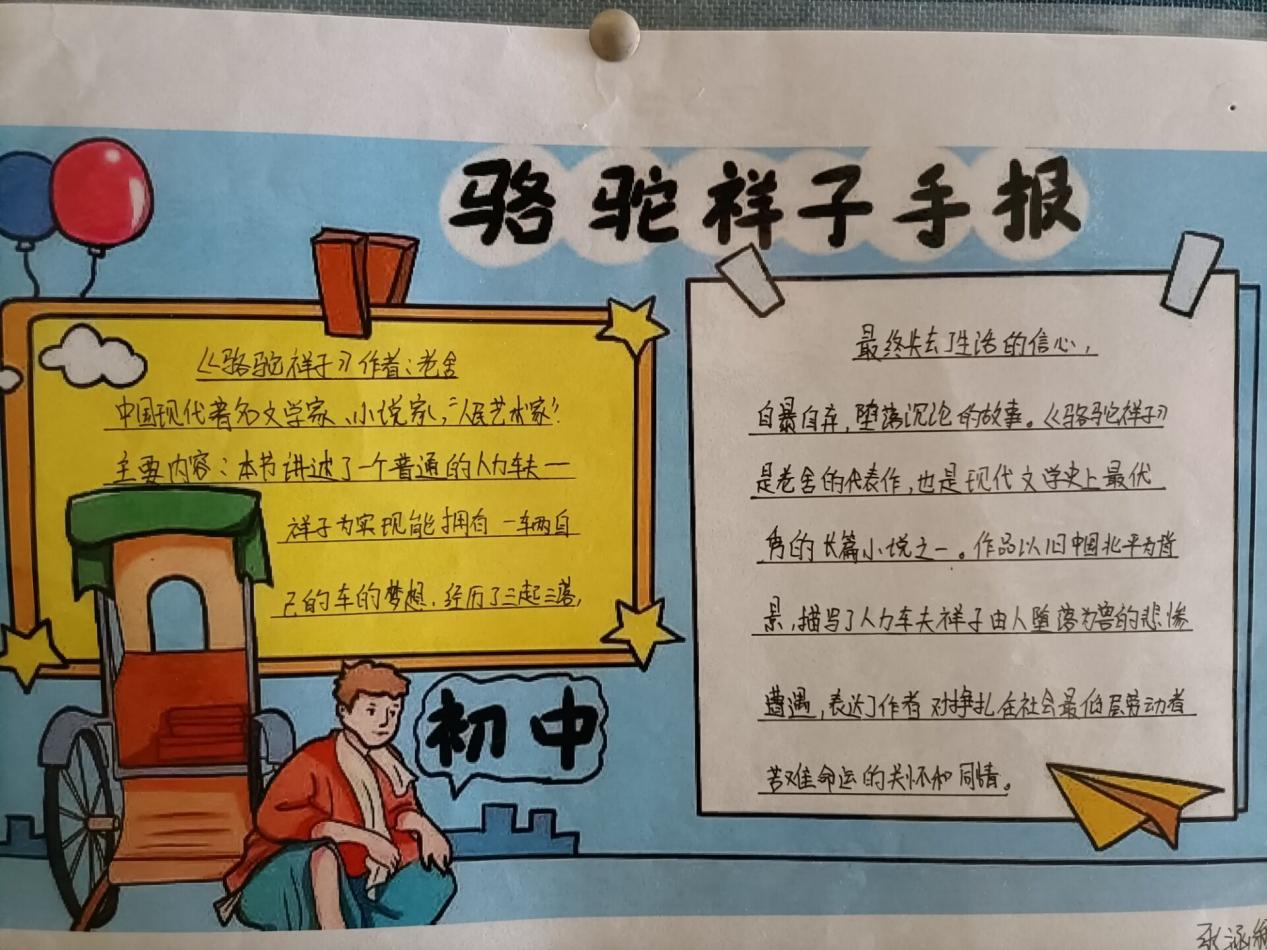 骆驼祥子手报
《骆驼祥子》作者:老舍
中国现代著名文学家、小说家,“人民艺术家”
主要内容:本节讲述了一个普通的人力车夫一
祥子为实现能拥有一车两自
己的车的梦想.经历了三起三落,
初中
最终失去了生活的信心,
自暴自弃,堕落沉沦的故事。《骆驼祥子》
是老舍的代表作,也是现代文学史上最优
秀的长篇小说之一。作品以旧中国北平为背
景,描写了人力车夫祥子由人堕落为兽的悲惨
遭遇,表达了作者对挣扎在社会最低层劳动者
苦难命运的关怀和同情。